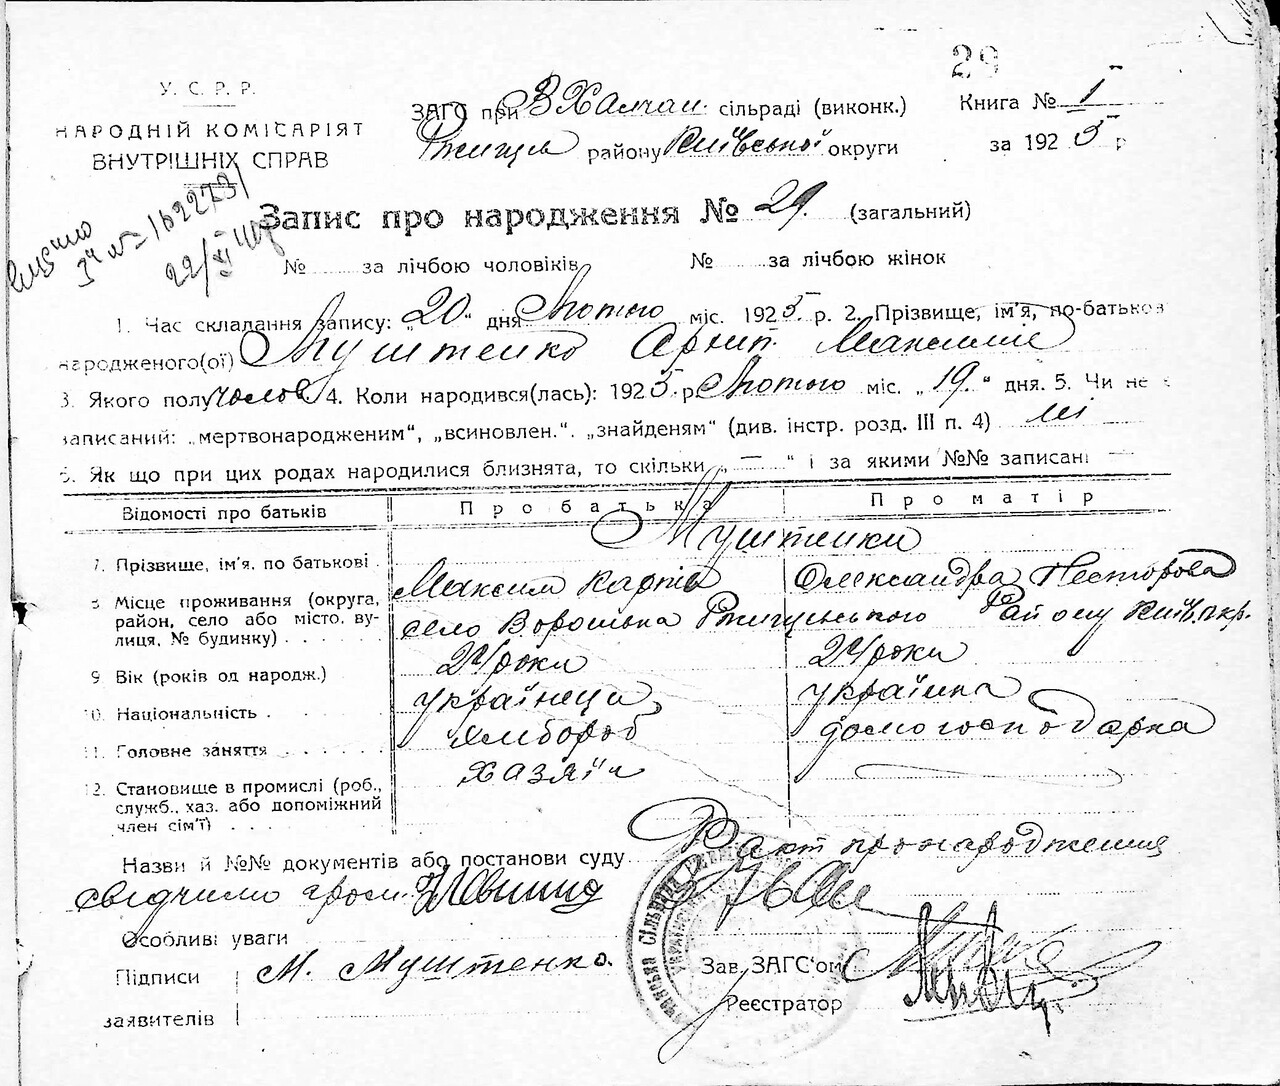 29
У. С. Р. Р.
НАРОДНІЙ КОМІСАРІЯТ
ВНУТРІШНІХ СПРАВ
ЗАГС при В Халчан. сільраді (виконк.) Книга № 1
Ржищів району Київської округи за 1925 р
Запис про народження № 29. (загальний)
22/XI
№ за лічбою чоловіків № за лічбою жінок
1. Час складання запису: „20“ дня Лютого міс. 1925. р. 2. Прізвище, ім'я, по-батьков
народженого(ої) Муштенко Архип Максимів
3. Якого полу чолов 4. Коли народився(лась): 1925 р. Лютого міс. „19“ дня. 5. Чи не є
записаний: „мертвонародженим“, „всиновлен.“. „знайденям“ (див. інстр. розд. III п. 4) ні
6. Як що при цих родах народилися близнята, то скільки „ — “ і за якими №№ записані —
Відомості про батьків Про батька Про матір
Муштенки
7. Прізвище, ім'я, по батькові Максим Карпів Олександра Несторова
8 Місце проживання (округа,
район, село або місто, ву-
лиця, № будинку) село Ворошівка Ржищівського Району Київ. окр.
9 Вік (років од народж.) 24 роки 24 роки
10. Національність українець українка
11. Головне заняття хлібороб домогосподарка
12. Становище в промислі (роб.,
служб., хаз. або допоміжний
член сім'ї) хазяїн
Назви й №№ документів або постанови суду Факт про народження
свідчимо гром.
Особливі уваги
Підписи М. Муштенко.
заявителів
Зав. ЗАГС'ом
Реєстратор